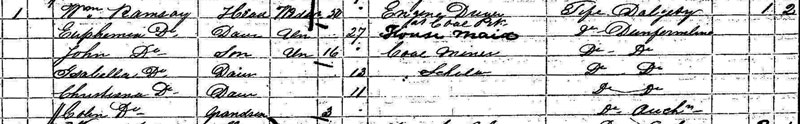 1 Wm Ramsay Head Widr 50 Engine Driver Fife Dalgety 1 2
at Coal Pit
Euphemia Do Daur Un 27 House Maid Do Dunfermline
John Do Son Un 16 Coal Miner Do Do
Isabella Do Daur 12 Scholar Do Do
Christiana Do Daur 11 Do Do
Colin Do Grandson 3 Do Auch